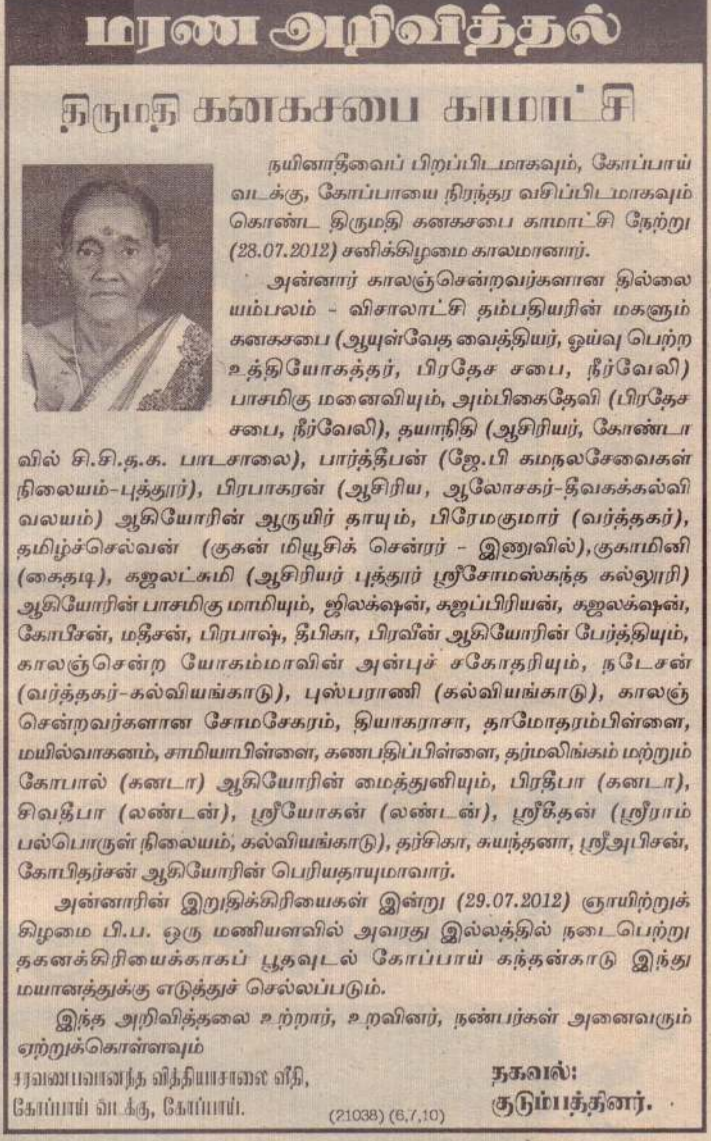 மரண அறிவித்தல்
திருமதி கனகசபை காமாட்சி
நயினாதீவைப் பிறப்பிடமாகவும், கோப்பாய்
வடக்கு, கோப்பாயை நிரந்தர வசிப்பிடமாகவும்
கொண்ட திருமதி கனகசபை காமாட்சி நேற்று
(28.07.2012) சனிக்கிழமை காலமானார்.
அன்னார் காலஞ்சென்றவர்களான தில்லை
யம்பலம் - விசாலாட்சி தம்பதியரின் மகளும்
கனகசபை (ஆயுள்வேத வைத்தியர், ஓய்வு பெற்ற
உத்தியோகத்தர், பிரதேச சபை, நீர்வேலி)
பாசமிகு மனைவியும், அம்பிகைதேவி (பிரதேச
சபை, நீர்வேலி), தயாநிதி (ஆசிரியர், கோண்டா
வில் சி.சி.த.க. பாடசாலை), பார்த்தீபன் (ஜே.பி கமநலசேவைகள்
நிலையம்-புத்தூர்), பிரபாகரன் (ஆசிரிய, ஆலோசகர்-தீவகக்கல்வி
வலயம்) ஆகியோரின் ஆருயிர் தாயும், பிரேமகுமார் (வர்த்தகர்),
தமிழ்ச்செல்வன் (குகன் மியூசிக் சென்ரர் - இணுவில்),குகாமினி
(கைதடி), கஜலட்சுமி (ஆசிரியர் புத்தூர் ஸ்ரீசோமஸ்கந்த கல்லூரி)
ஆகியோரின் பாசமிகு மாமியும், ஜிலக்ஷன், கஜப்பிரியன், கஜலக்ஷன்,
கோபீசன், மதீசன், பிரபாஷ், தீபிகா, பிரவீன் ஆகியோரின் பேர்த்தியும்,
காலஞ்சென்ற யோகம்மாவின் அன்புச் சகோதரியும், நடேசன்
(வர்த்தகர்-கல்வியங்காடு), புஸ்பராணி (கல்வியங்காடு), காலஞ்
சென்றவர்களான சோமசேகரம், தியாகராசா, தாமோதரம்பிள்ளை,
மயில்வாகனம், சாமியாபிள்ளை, கணபதிப்பிள்ளை, தர்மலிங்கம் மற்றும்
கோபால் (கனடா) ஆகியோரின் மைத்துனியும், பிரதீபா (கனடா),
சிவதீபா (லண்டன்), ஸ்ரீயோகன் (லண்டன்), ஸ்ரீகீதன் (ஸ்ரீராம்
பல்பொருள் நிலையம், கல்வியங்காடு), தர்சிகா, சுயந்தனா, ஸ்ரீஅபிசன்,
கோபிதர்சன் ஆகியோரின் பெரியதாயுமாவார்.
அன்னாரின் இறுதிக்கிரியைகள் இன்று (29.07.2012) ஞாயிற்றுக்
கிழமை பி.ப. ஒரு மணியளவில் அவரது இல்லத்தில் நடைபெற்று
தகனக்கிரியைக்காகப் பூதவுடல் கோப்பாய் கந்தன்காடு இந்து
மயானத்துக்கு எடுத்துச் செல்லப்படும்.
இந்த அறிவித்தலை உற்றார், உறவினர், நண்பர்கள் அனைவரும்
ஏற்றுக்கொள்ளவும்
சரவணபவானந்த வித்தியாசாலை வீதி,
கோப்பாய் வடக்கு, கோப்பாய்.
(21038) (6,7,10)
தகவல்:
குடும்பத்தினர்.